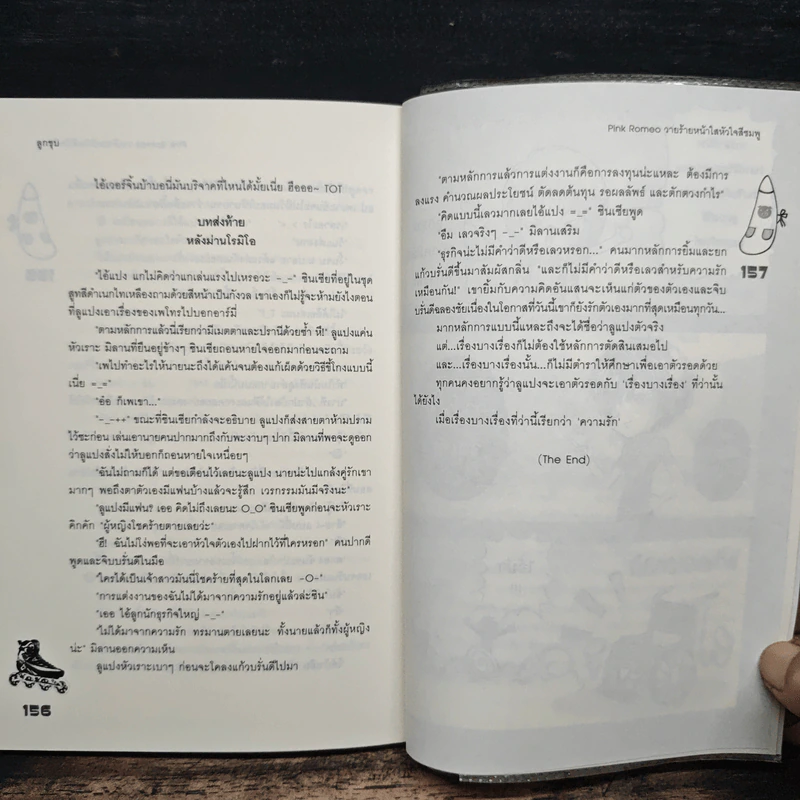 ลูกชุบ
ไอ้เวอร์จิ้นบ้าบอนี่มันบริจาคที่ไหนได้มั้ยเนี่ย ฮืออออ~ TOT
บทส่งท้าย
หลังม่านโรมิโอ
"ไอ้แปง แกไม่คิดว่าแกเล่นแรงไปเหรอวะ -_-" ซินเซียที่อยู่ในชุด
สูทสีดำเนกไทเหลืองถามด้วยสีหน้าเป็นกังวล เขาเองก็ไม่รู้จะห้ามยังไงตอน
ที่ลูแปงเอาเรื่องของเพไทรไปบอกอาร์มี่
"ตามหลักการแล้วนี่เรียกว่ามีเมตตาและปรานีด้วยซ้ำ หึ!" ลูแปงแค่น
หัวเราะ มิลานที่ยืนอยู่ข้างๆ ซินเซียถอนหายใจออกมาก่อนจะถาม
"เพไปทำอะไรให้นายนะถึงได้แค้นจนต้องแก้เผ็ดด้วยวิธีขี้โกงแบบนี้
เนี่ย =_="
"อ๋อ ก็เพเขา..."
"-_-++" ขณะที่ซินเซียกำลังจะอธิบาย ลูแปงก็ส่งสายตาห้ามปราม
ไว้ซะก่อน เล่นเอานายคนปากมากถึงกับพะงาบๆ ปาก มิลานที่พอจะดูออก
ว่าลูแปงสั่งไม่ให้บอกก็ถอนหายใจเหนื่อยๆ
"ฉันไม่ถามก็ได้ แต่ขอเตือนไว้เลยนะลูแปง นายน่ะไปแกล้งคู่รักเขา
มากๆ พอถึงตาตัวเองมีแฟนบ้างแล้วจะรู้สึก เวรกรรมมันมีจริงนะ"
"ลูแปงมีแฟน? เออ คิดไม่ถึงเลยนะ O_O" ซินเซียพูดก่อนจะหัวเราะ
คิกคัก "ผู้หญิงโชคร้ายตายเลยว่ะ"
"ฮึ! ฉันไม่โง่พอที่จะเอาหัวใจตัวเองไปฝากไว้ที่ใครหรอก" คนปากดี
พูดและจิบบรั่นดีในมือ
"ใครได้เป็นเจ้าสาวมันนี่โชคร้ายที่สุดในโลกเลย -O-"
"การแต่งงานของฉันไม่ได้มาจากความรักอยู่แล้วล่ะซิน"
"เออ ไอ้ลูกนักธุรกิจใหญ่ -_-"
"ไม่ได้มาจากความรัก ทรมานตายเลยนะ ทั้งนายแล้วก็ทั้งผู้หญิง
น่ะ" มิลานออกความเห็น
ลูแปงหัวเราะเบาๆ ก่อนจะโคลงแก้วบรั่นดีไปมา
156
Pink Romeo วายร้ายหน้าใสหัวใจสีชมพู
"ตามหลักการแล้วการแต่งงานก็คือการลงทุนน่ะแหละ ต้องมีการ
ลงแรง คำนวณผลประโยชน์ ตัดลดต้นทุน รอผลลัพธ์ และตักตวงกำไร"
"คิดแบบนี้เลวมากเลยไอ้แปง =_=" ซินเซียพูด
"อืม เลวจริงๆ -_-" มิลานเสริม
"ธุรกิจน่ะไม่มีคำว่าดีหรือเลวหรอก..." คนมากหลักการยิ้มและยก
แก้วบรั่นดีขึ้นมาสัมผัสกลิ่น "และก็ไม่มีคำว่าดีหรือเลวสำหรับความรัก
เหมือนกัน!" เขายิ้มกับความคิดอันแสนจะเห็นแก่ตัวของตัวเองและจิบ
บรั่นดีฉลองชัยเนื่องในโอกาสที่วันนี้เขาก็ยังรักตัวเองมากที่สุดเหมือนทุกวัน...
มากหลักการแบบนี้แหละถึงจะได้ชื่อว่าลูแปงตัวจริง
แต่...เรื่องบางเรื่องก็ไม่ต้องใช้หลักการตัดสินเสมอไป
และ...เรื่องบางเรื่องนั้น...ก็ไม่มีตำราให้ศึกษาเพื่อเอาตัวรอดด้วย
ทุกคนคงอยากรู้ว่าลูแปงจะเอาตัวรอดกับ 'เรื่องบางเรื่อง' ที่ว่านั้น
ได้ยังไง
เมื่อเรื่องบางเรื่องที่ว่านี้เรียกว่า 'ความรัก'
(The End)
157